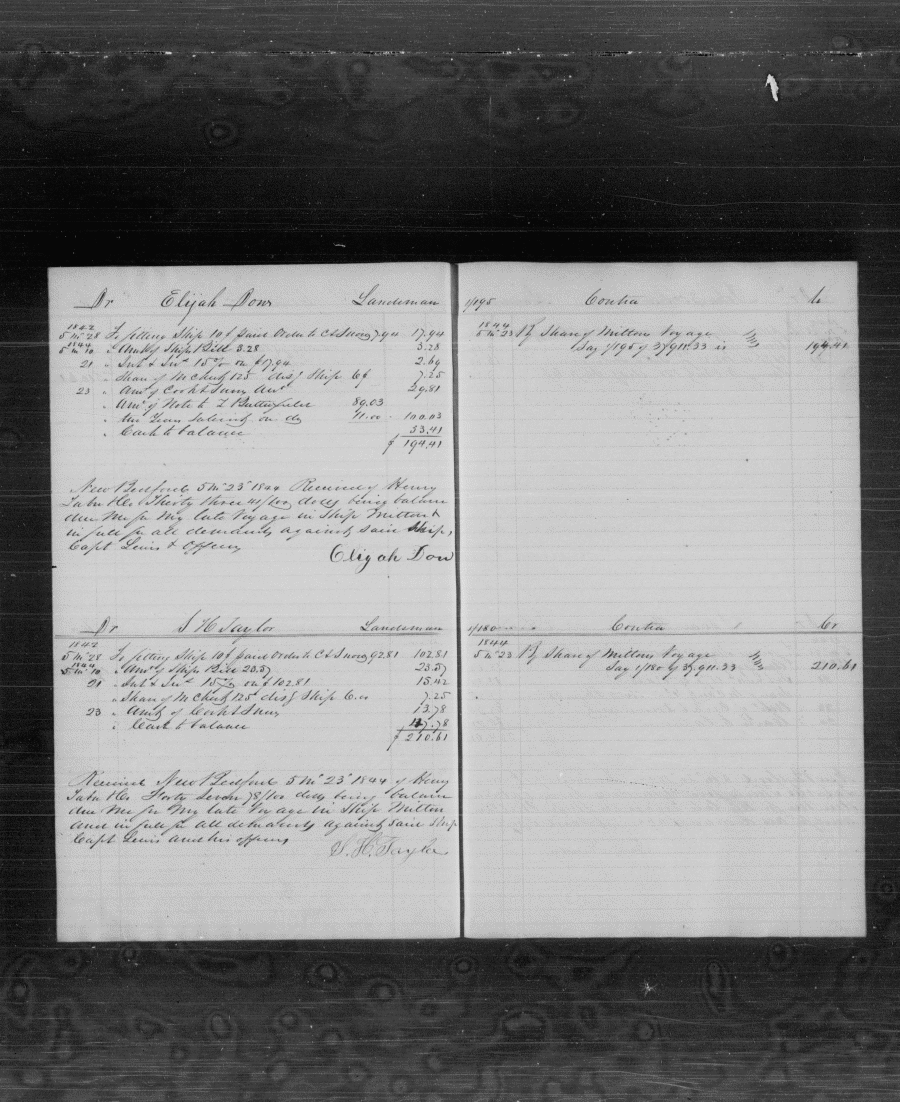 Dr Elijah Dow Landsman
1842
5 mo 28 To fitting Ship 10$ paid Order to C & Snow 7.94 17.94
1844
5 mo 10 " Amt of Ships Bill 3.28 3.28
21 " Int & Ins 15% on $17.94 2.69
" Share of M Chest 125 disg Ship 6$ 7.25
23 " Amt of Cook & Snow 29.81
" Amt of Note to Z Butterfield 89.03
" on do 11.00 100.03
" Cash to balance 33.41
$ 194.41
New Bedford 5 mo 23 1844 Received of Henry
Taber & Co Thirty three 41/100 dolls being balance
due Me for My late Voyage in Ship Milton &
in full for all demands against said Ship,
Capt Lewis & Officers
Elijah Dow
Dr S H Taylor Landsman
1842
5 mo 28 To fitting Ship 10$ paid Order to C & Snow 92.81 102.81
1844
5 mo 10 " Amt of Ships Bill 23.57 23.57
21 " Int & Ins 15% on $102.81 15.42
" Share of M Chest 125 disg Ship 6.00 7.25
23 " Amt of Cook & Snow 13.78
" Cash to balance 47.78
$ 210.61
Received New Bedford 5 mo 23 1844 of Henry
Taber & Co Forty Seven 78/100 dolls being balance
due Me for My late Voyage in Ship Milton
and in full for all demands against said Ship
Capt Lewis and his officers
S. H. Taylor
1/195 Contra Cr
1844
5 mo 23 By Share of Miltons Voyage
Say 1/195 of 37,911.33 is 194.41
1/180 Contra Cr
1844
5 mo 23 By Share of Miltons Voyage
Say 1/180 of 37,911.33 210.61